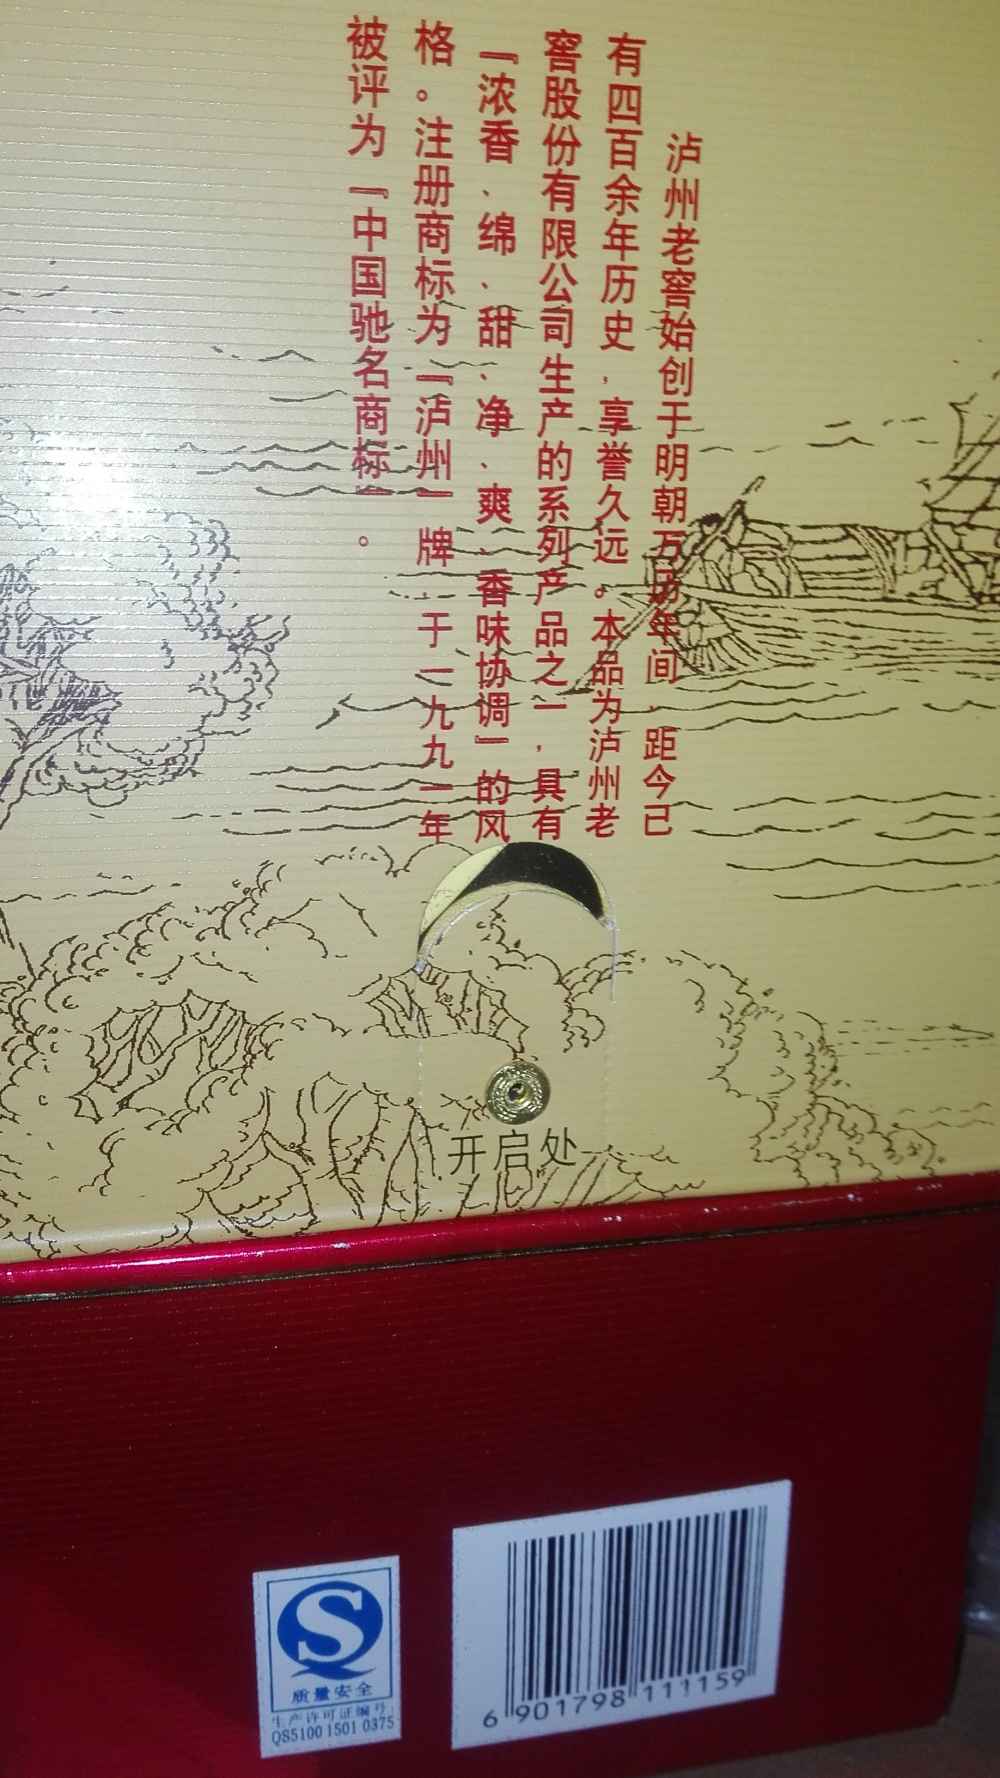 泸州老窖始创于明朝万历年间，距今已
有四百余年历史，享誉久远。本品为泸州老
窖股份有限公司生产的系列产品之一，具有
『浓香、绵、甜、净、爽、香味协调』的风
格。注册商标为『泸州』牌，于一九九一年
被评为『中国驰名商标』。
开启处
质量安全
生产许可证编号:
QS5100 1501 0375
6 901798 111159